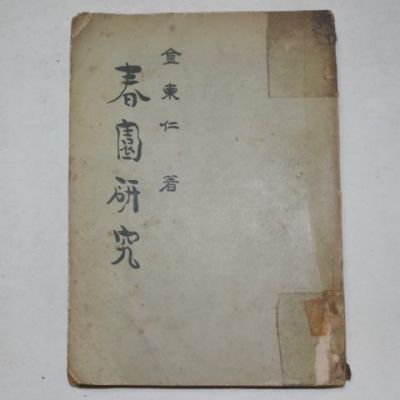 金東仁 著
春園研究